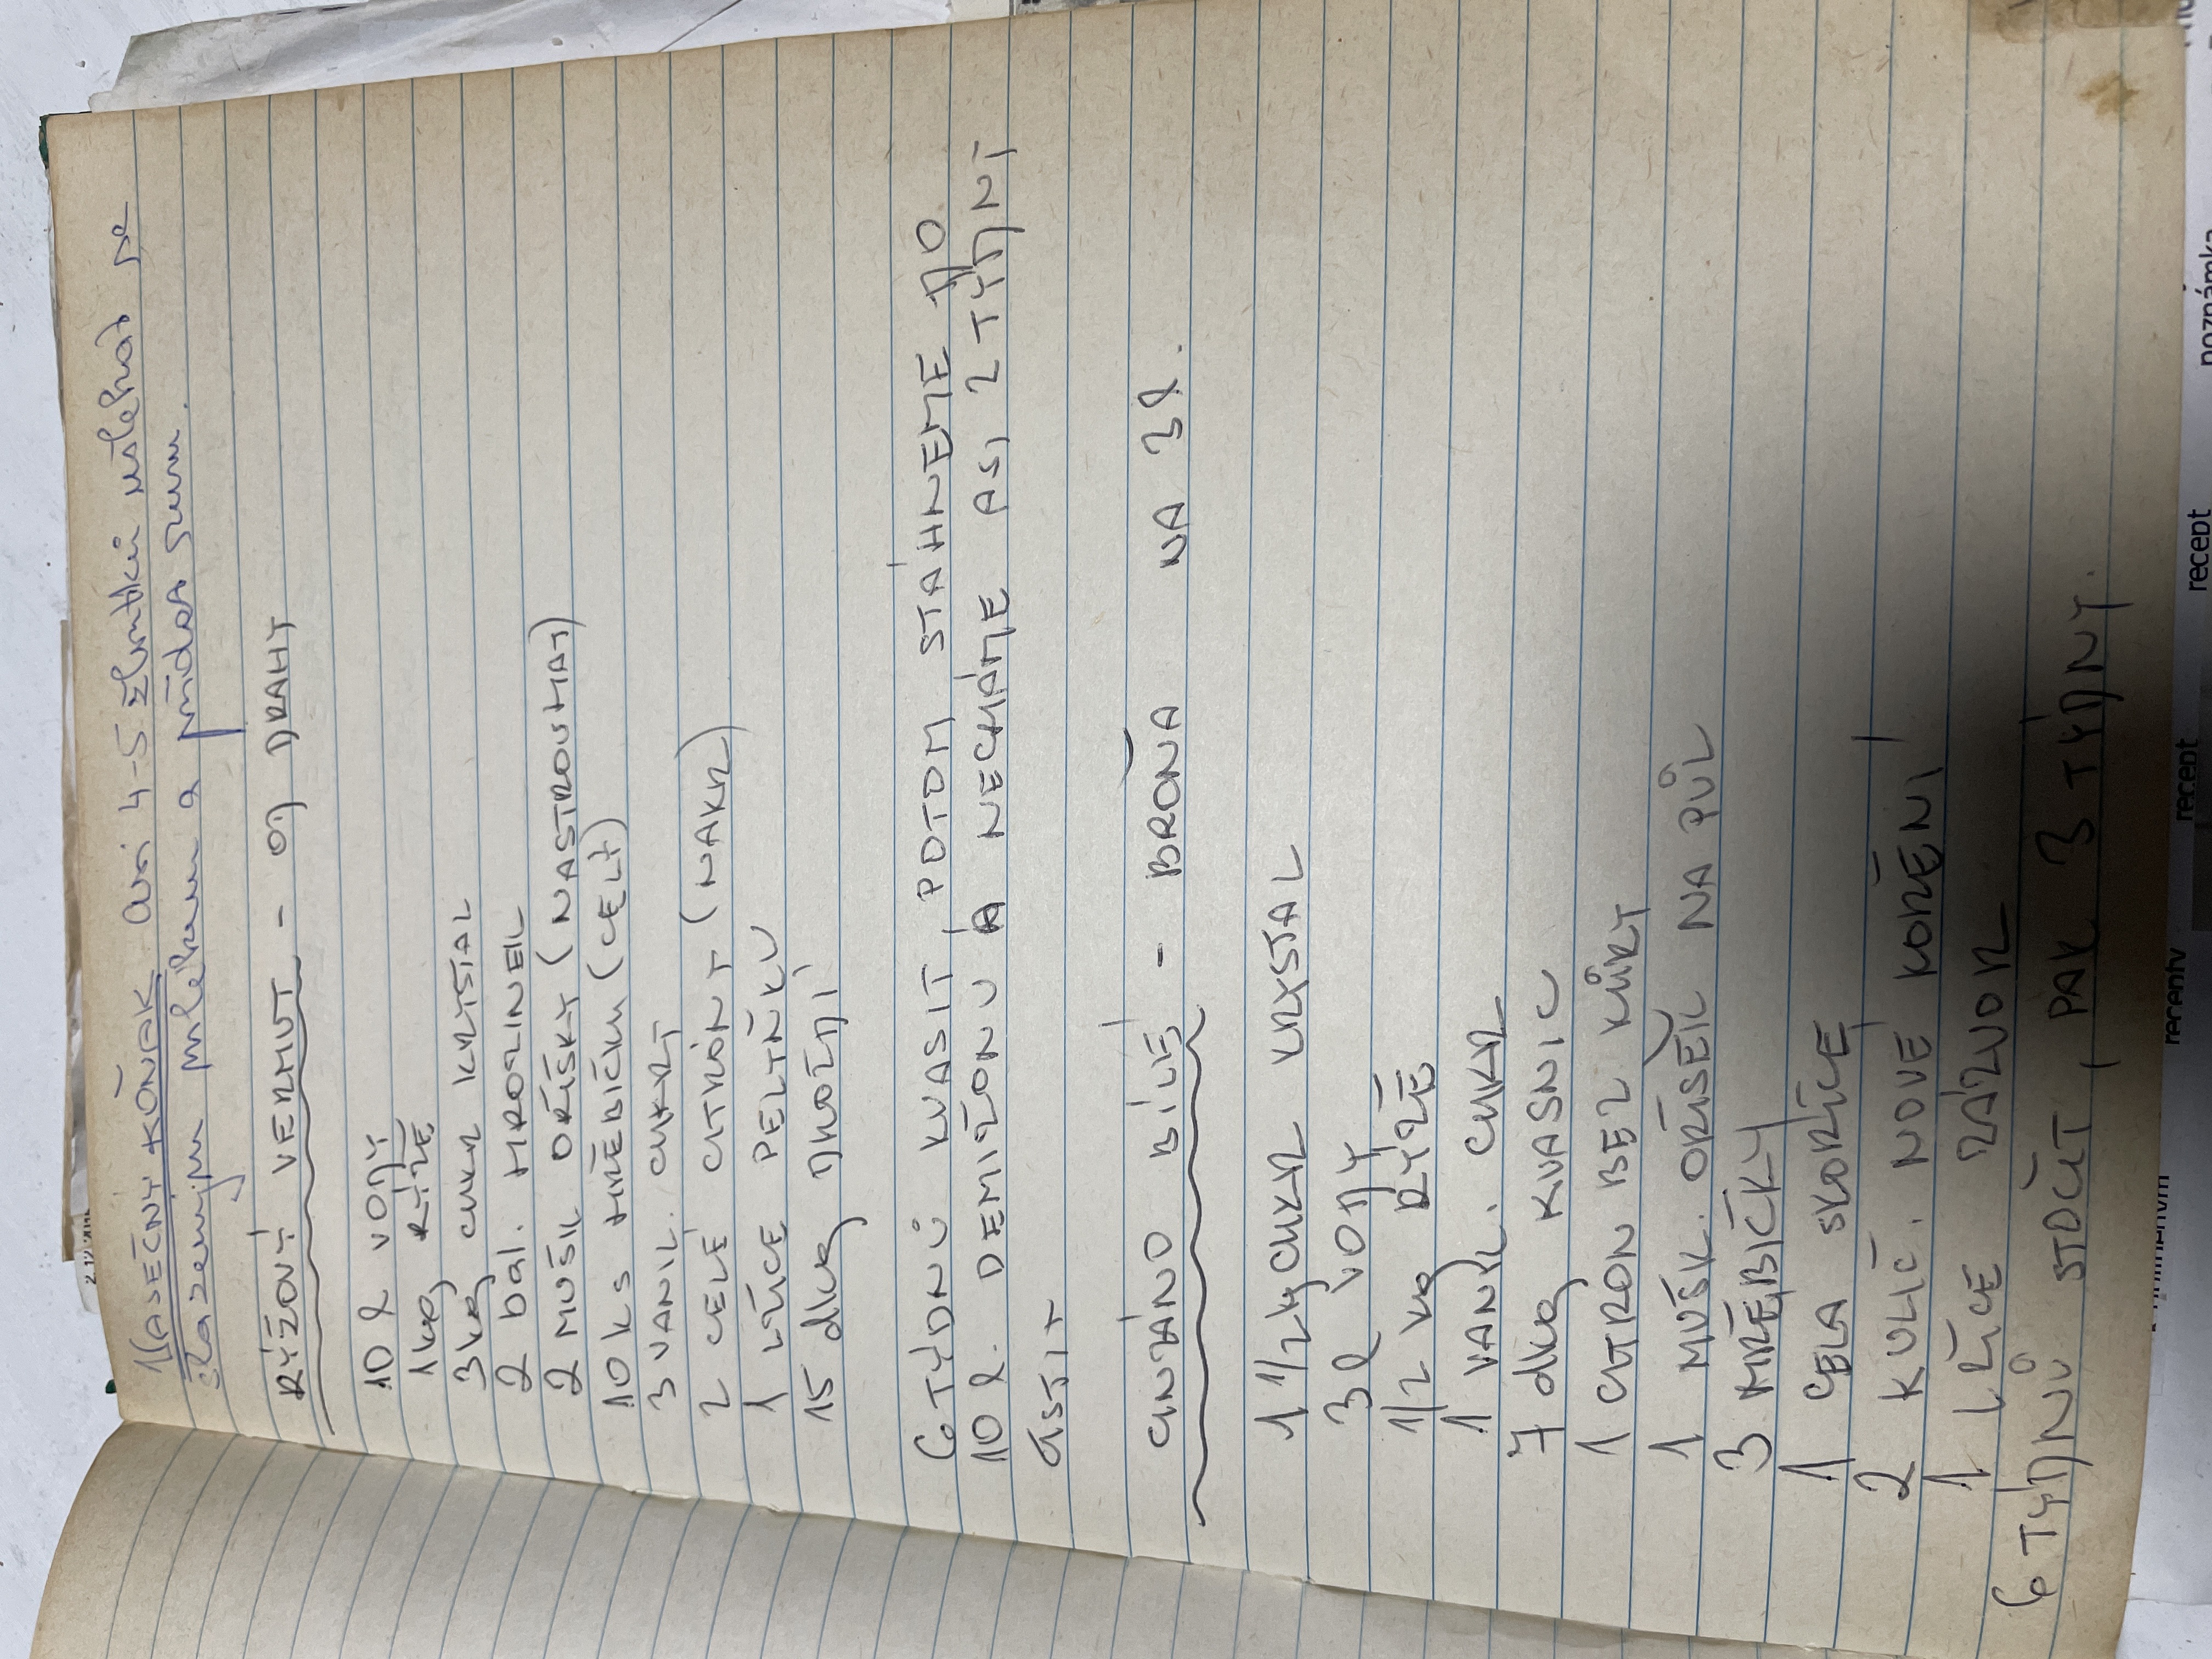 2.12.201
VAJEČNÝ KOŇAK asi 4-5 žloutků ušlehat se
slazeným mlékem a přidat rum.
RÝŽOVÝ VERMUT - OD DRAHY
10 l VODY
1 kg RÝŽE
3 kg CUKR KRYSTAL
2 bal. HROZINEK
2 MUŠK OŘÍŠKY (NASTROUHAT)
10 ks HŘEBÍČKU (CELÝ)
3 VANIL. CUKRY
2 CELÉ CITRÓNY (NAKR)
1 LŽÍCE PELYŇKU
15 dkg DROŽDÍ
6 TÝDNŮ KVASIT, POTOM STÁHNEME DO
10 l. DEMIŽONU A NECHÁME ASI 2 TÝDNY
ČISTIT
CINZÁNO BÍLÉ - BROŇA NA 3 l.
1 1/2 kg CUKR KRYSTAL
3 l VODY
1/2 kg RÝŽE
1 VANIL. CUKR
7 dkg KVASNIC
1 CITRON BEZ KŮRY
1 MUŠK. OŘÍŠEK NA PŮL
3 HŘEBÍČKY
1 CELA SKOŘICE
2 KULIČ. NOVÉ KOŘENÍ
1 LŽÍCE ZÁZVOR
6 TÝDNŮ STOČIT, PAK 3 TÝDNY.
recepty recept recept poznámka